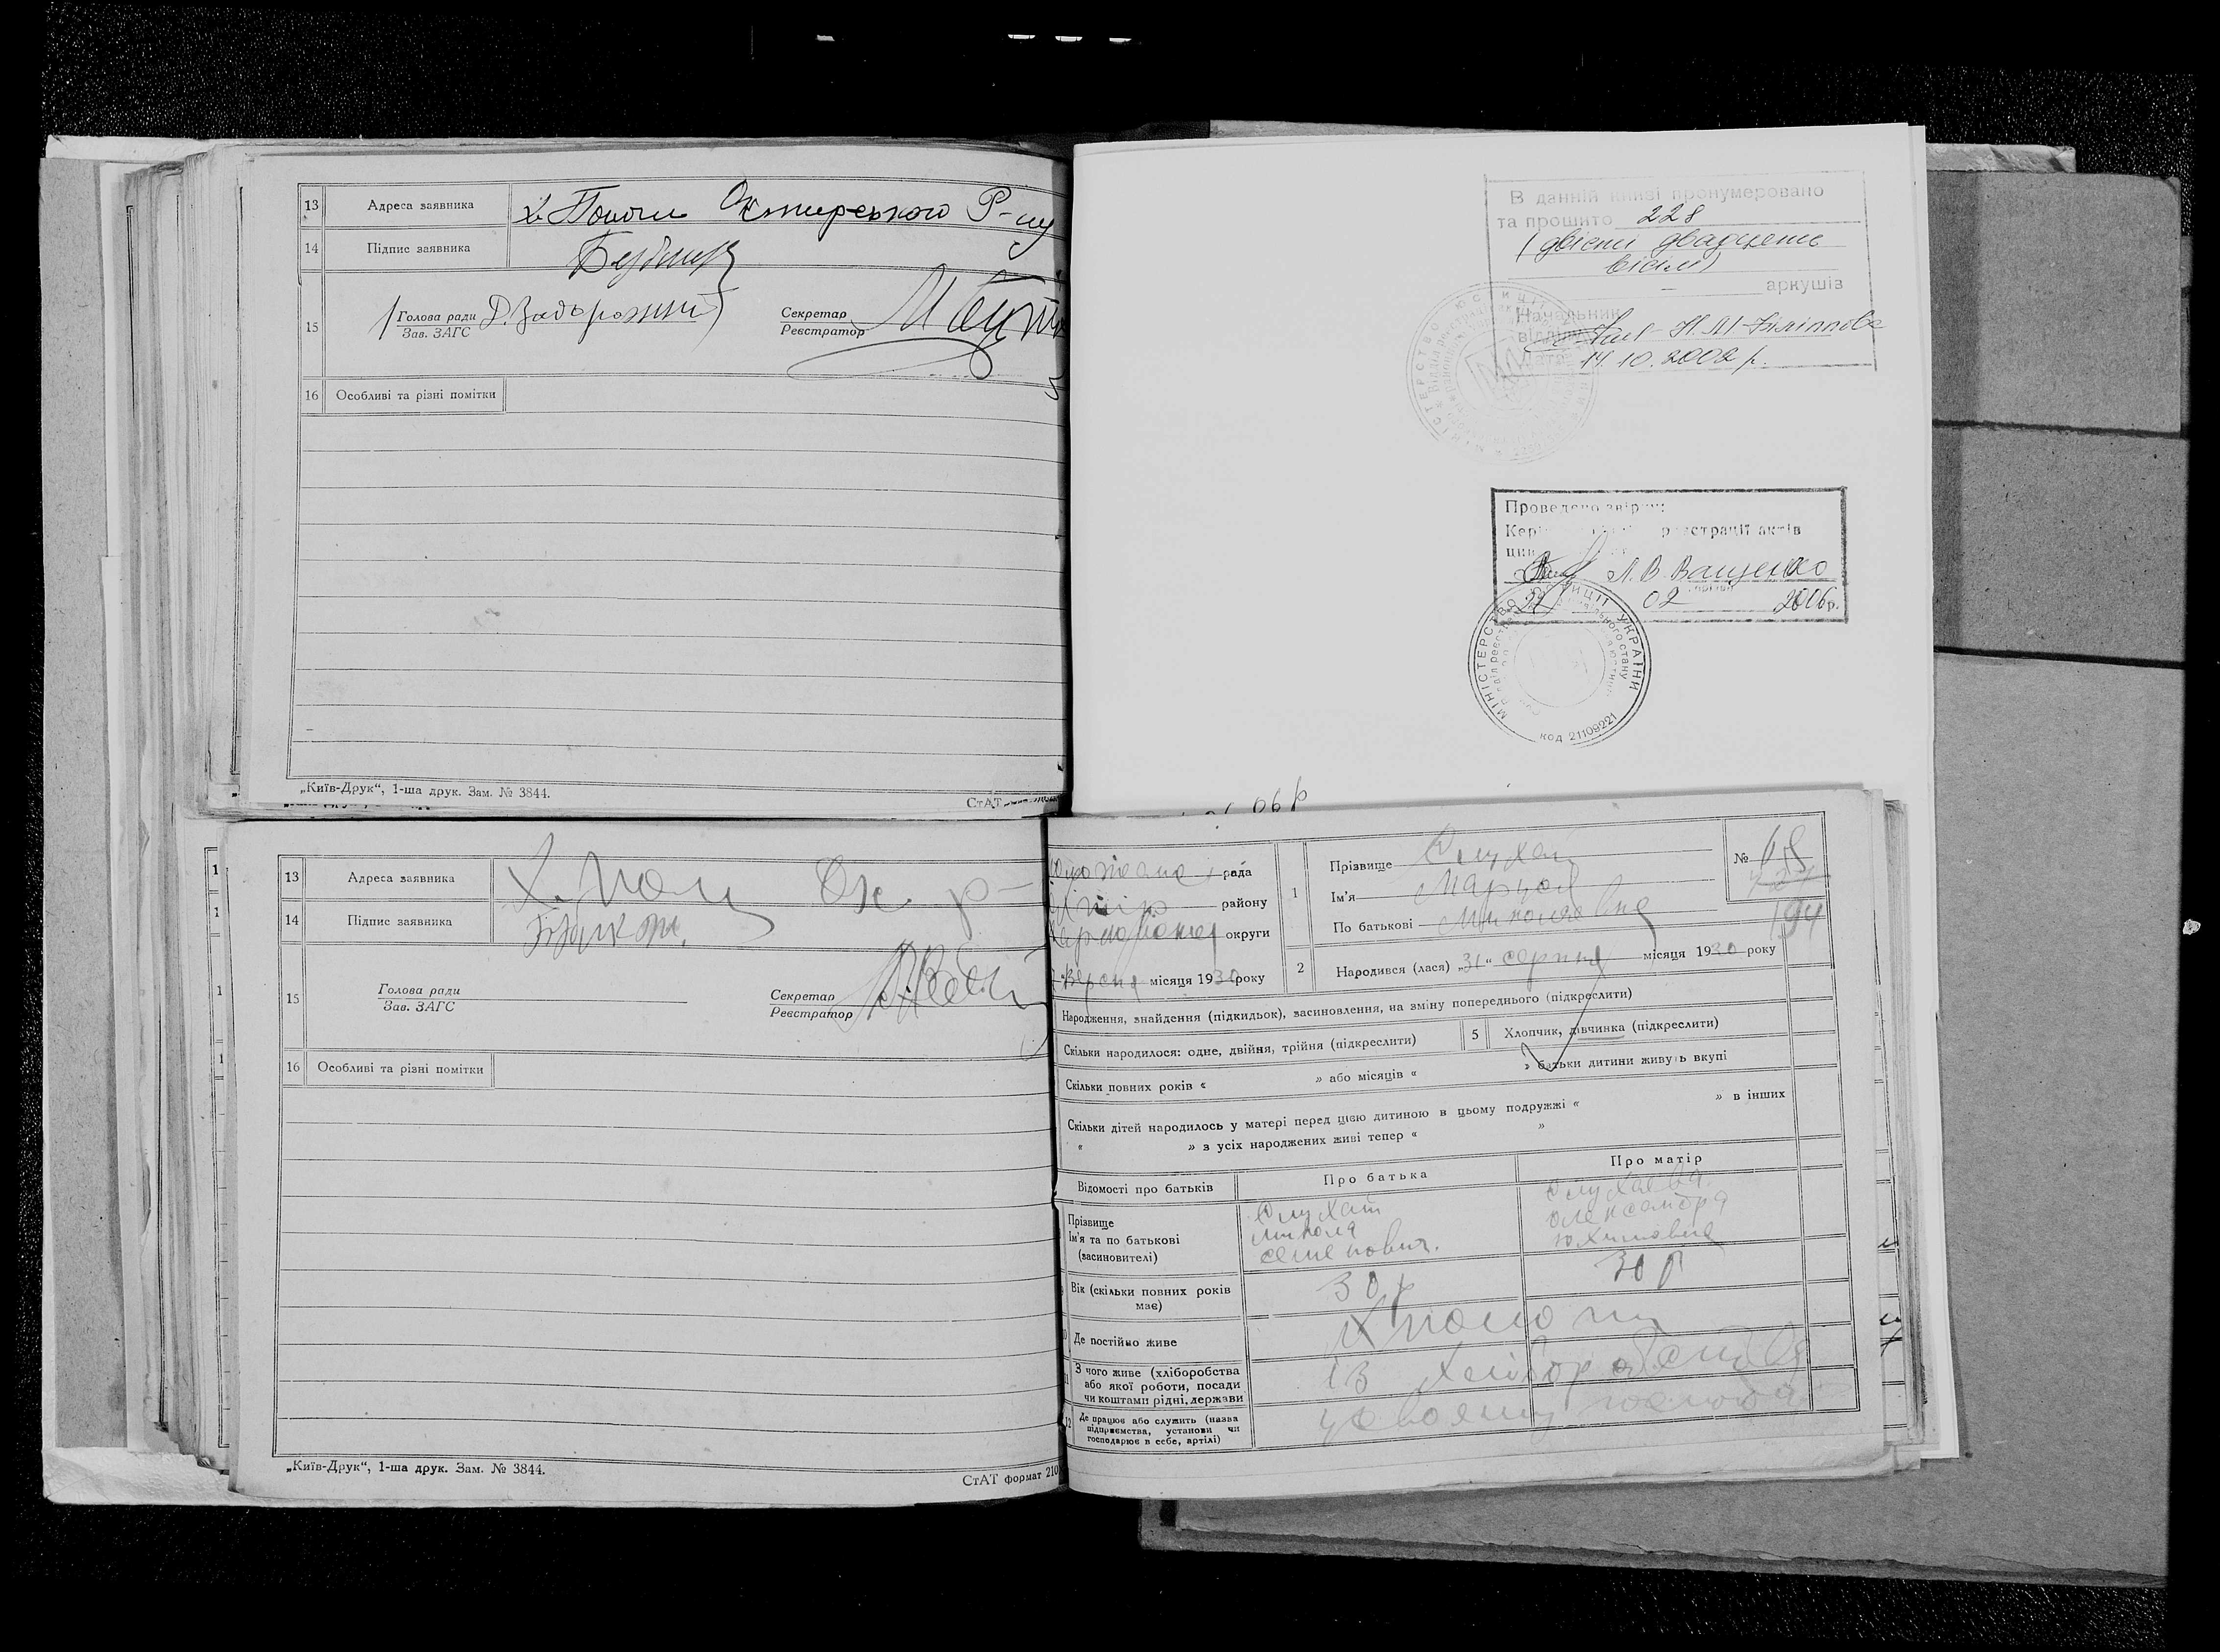 13 Адреса заявника х. Пологи Охтирського Р-ну
14 Підпис заявника
15 Голова ради Д. Задорожній
Зав. ЗАГС
Секретар
Реєстратор
16 Особливі та різні помітки
„Київ-Друк“, 1-ша друк. Зам. № 3844.
СтАТ
В данній книзі пронумеровано
та прошито 228
(двісти двадцять
вісім)
аркушів
Начальник
відділу
14.10.2002 р.
Проведено звірку:
реєстрації актів
Л.В. Ващенко
22 02 2006 р.
МІНІСТЕРСТВО ЮСТИЦІЇ УКРАЇНИ
код 21109221
06 р
13 Адреса заявника Х. Ох. р-
14 Підпис заявника
15 Голова ради
Зав. ЗАГС
Секретар
Реєстратор
16 Особливі та різні помітки
„Київ-Друк“, 1-ша друк. Зам. № 3844.
СтАТ формат 210
рада
району
округи
місяця 1930 року
1 Прізвище Слухай
Ім'я Маруся
По батькові Миколаївна
№ 18
194
2 Народився (лася) „31“ серпня місяця 1930 року
Народження, знайдення (підкидьок), засиновлення, на зміну попереднього (підкреслити)
Скільки народилося: одне, двійня, трійня (підкреслити)
5 Хлопчик, дівчинка (підкреслити)
Скільки повних років « » або місяців « » батьки дитини живуть вкупі
Скільки дітей народилось у матері перед цією дитиною в цьому подружжі « » в інших
« » з усіх народжених живі тепер « »
Відомості про батьків Про батька Про матір
Прізвище
Ім'я та по батькові
(засиновителі)
Слухай
Микола
Семенович.
Слухаєва
Олександра
Юхимовна
Вік (скільки повних років
має)
30 р 30 р
Де постійно живе х Пологи
З чого живе (хліборобства
або якої роботи, посади
чи коштами рідні, держави
із хліборобства
12 Де працює або служить (назва
підприємства, установи чи
господарює в себе, артілі)
у своєму